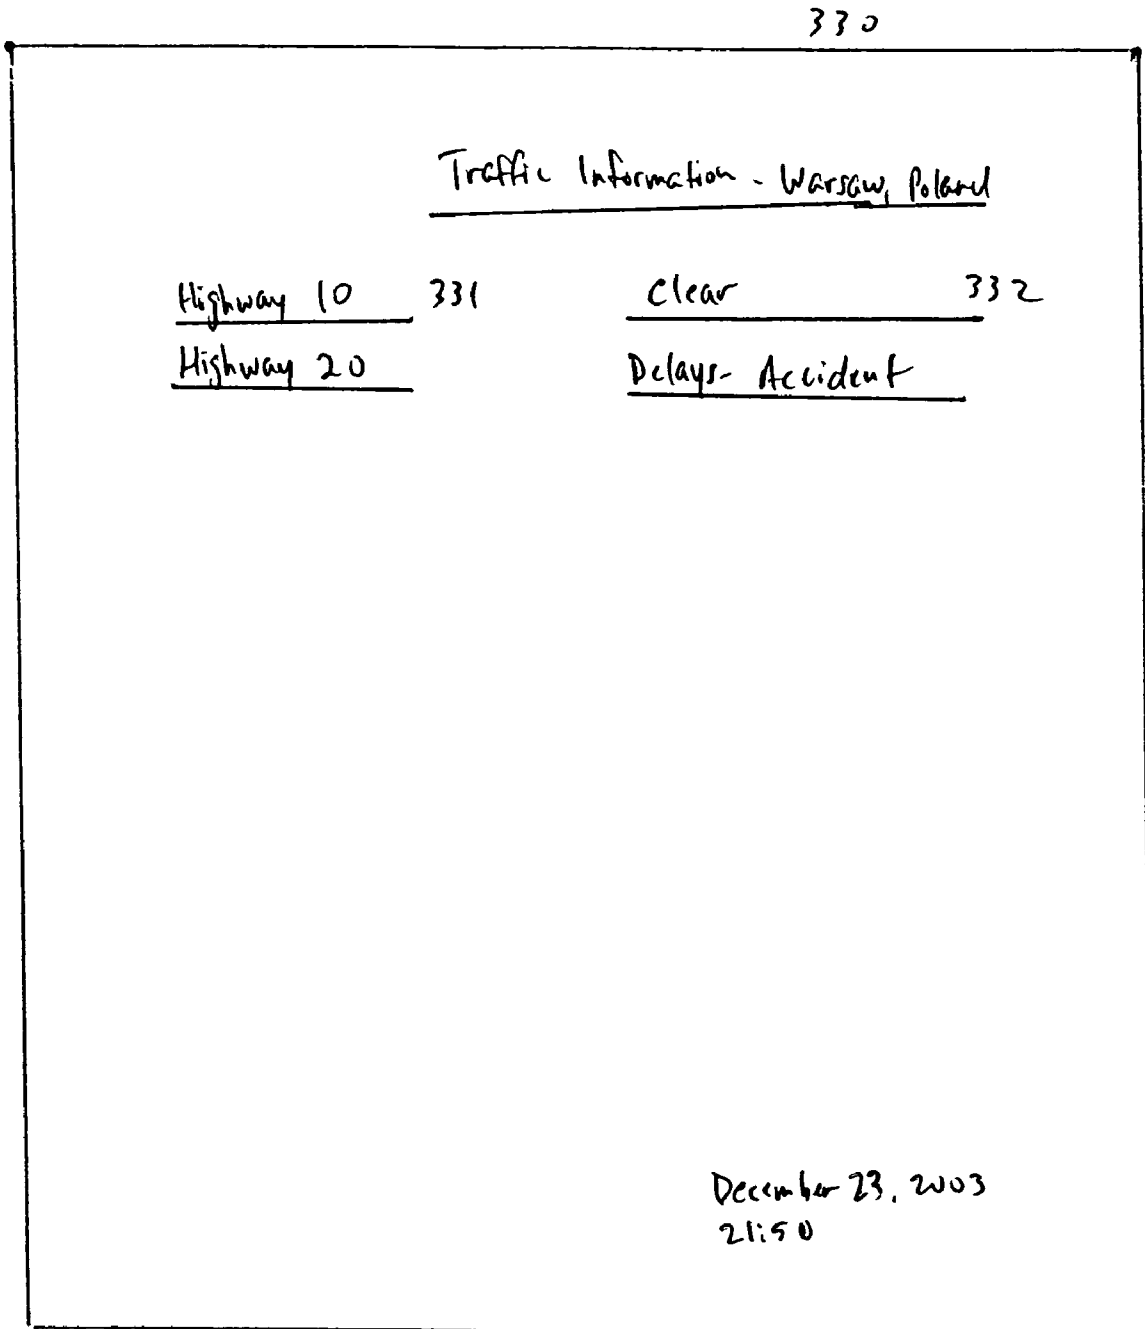 330
Traffic Information - Warsaw, Poland
Highway 10 331 Clear 332
Highway 20 Delays- Accident
December 23, 2003
21:50